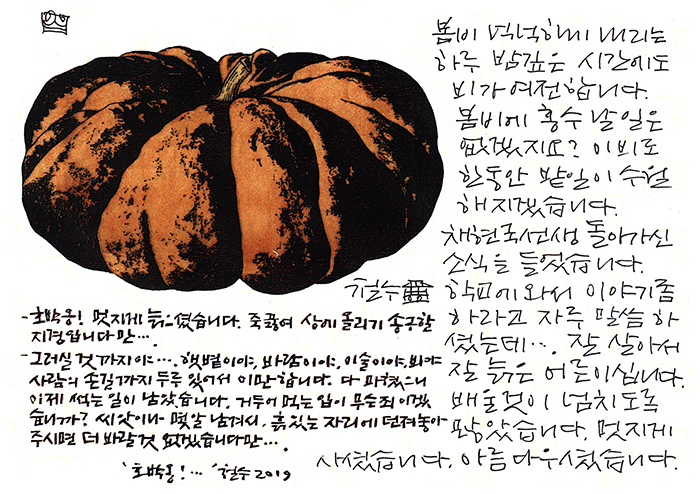 봄비 넉넉하게 내리는
하루 밤깊은 시간에도
비가 여전합니다.
봄비에 홍수 날 일은
없겠지요? 이 비로
한동안 밭일이 수월
해지겠습니다.
채현국선생 돌아가신
소식을 들었습니다.
학교에 와서 이야기좀
하라고 자주 말씀 하
셨는데···. 잘 살아서
잘 늙은 어른이십니다.
배울것이 넘치도록
많았습니다. 멋지게
사셨습니다. 아름다우셨습니다.
철수
-호박옹! 멋지게 늙으셨습니다. 죽 끓여 상에 올리기 송구할
지경입니다만···.
-그러실 것 까지야···. 햇볕이야, 바람이야, 이슬이야, 비야
사람의 손길까지 두루 있어서 이만합니다. 다 파했으니
이제 썩는 일이 남았습니다. 거두어 먹는 입이 무슨죄이겠
습니까? 씨앗이나 몇알 남겨서, 흙있는 자리에 던져놓아
주시면 더 바랄것 없겠습니다만···.
'호박옹!···' 철수 2019